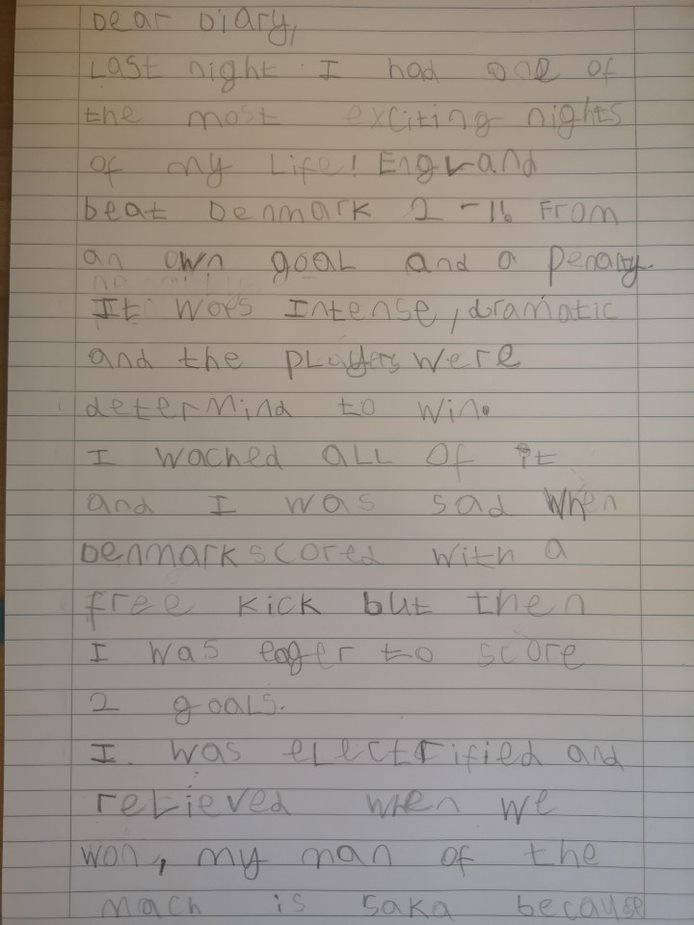 Dear Diary,
Last night I had one of
the most exciting nights
of my Life! England
beat Denmark 2-1 From
an own goal and a penalty.
It was Intense, dramatic
and the players were
determind to win.
I wached all of it
and I was sad when
Denmark scored with a
free kick but then
I was eager to score
2 goals.
I was electrified and
relieved when we
won, my man of the
mach is saka because